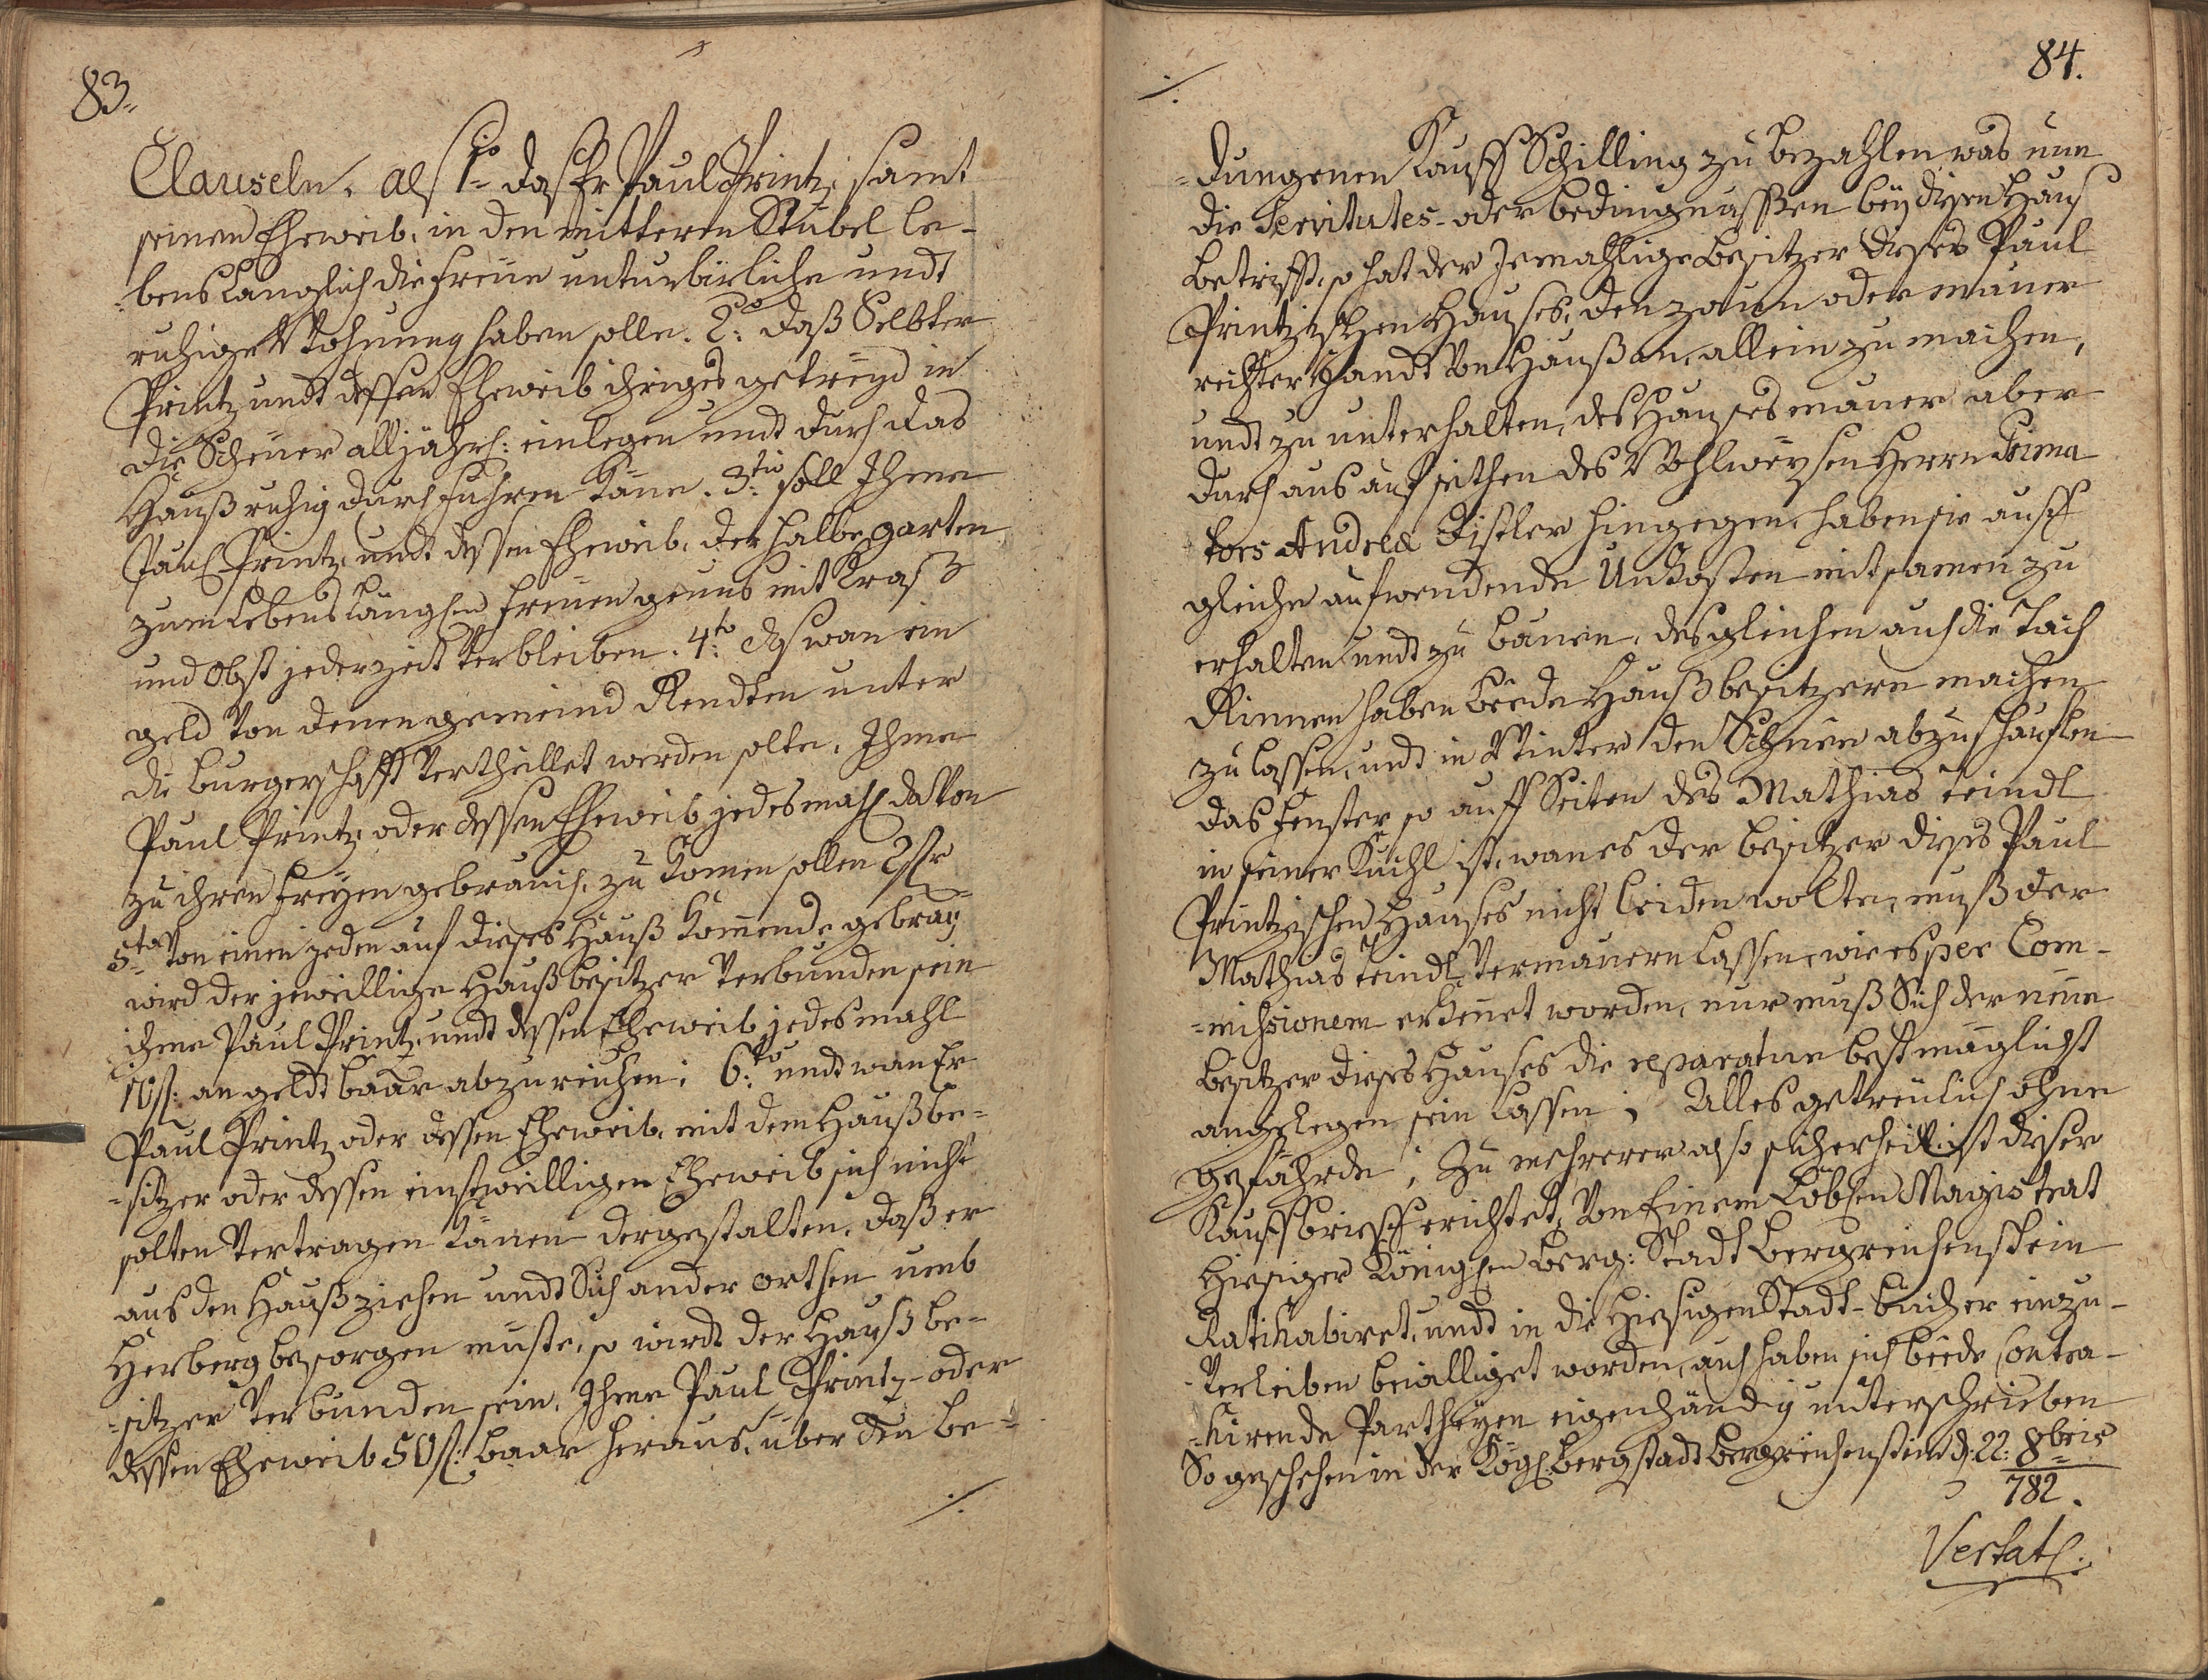 83.
Clauseln, als 1mo das Er Paul Printz, samt
seinen Eheweib, in den mitteren Stübel le-
bens Länglich die freüe unturbirliche undt
ruhige Wohnung haben solle. 2do: daß Selbter
Printz undt dessen Eheweib ihriges getreyd in
die Scheüer alljährl: einlegen undt durch das
Hauß ruhig durch führen könne. 3tio: soll Ihme
Paul Printz, undt dessen Eheweib, der halbe garten
zum Lebens länglen freüen genus mit Graß
und Obst jederzeit verbleiben. 4to: das wan ein
geld von denen gemeind Rendten unter
die burgerschafft vertheillet werden solte, Ihme
Paul Printz oder dessen Eheweib jedesmahl davon
zu ihren freyen gebrauch, zu komen sollen
5to von einen jeden auf dieses Hauß komende gebray
wird der jeweillige Haußbesitzer verbunden sein
ihme Paul Printz, undt dessen Eheweib jedesmahl
10 f: an geldt baar abzureichen; 6to: undt wan Er
Paul Printz oder dessen Eheweib, mit dem Haußbe-
-sitzer oder dessen einstweilligen Eheweib sich nicht
solten vertragen können dergestalten, daß er
aus den Hauß ziehen undt Sich ander orthen umb
Herberg besorgen müste, so wirdt der Haußbe-
-sitzer verbunden sein, Ihme Paul Printz- oder
dessen Eheweib 50 f: baar heraus, über den be-
./.
./.
84.
-dungenen Kauff Schilling zu bezahlen, was nun
die Servitutes- oder bedingnussen bey diesen Haus
betrifft, so hat der Jemahlige besitzer dieses Paul
Printzischen Hauses, den zaun oder mauer
rechter Handt von Hauß an, allein zu machen,
undt zu unterhalten, des Hauses mauer aber
durchaus auf seithen des Wohlweysen Herrn Prima
tors Andrea Distler hingegen, haben sie auff
gleiche aufwendende Unkosten mitsamen zu
erhalten undt zu bauen, desgleichen auch die Tach
Rinnen haben beede Haußbesitzere machen
zu lassen, und in Winter den Schnee abzuschauflen
das fenster so auff Seiten des Mathias Teindl
in seiner Kuchl ist, wan es der besitzer dieses Paul
Printzischen Hauses nicht leiden wolte, muß der
Mathias Teindl vermauern lassen, wie es per Com-
-missionem erkennet worden, nur muß Sich der neüe
besitzer dieses Hauses die reparatur bestmöglichst
angelegen sein lassen; Alles getreülich ohne
gefährde; Zu mehrerer also sicherheit ist dieser
Kauffbrieff errichtet, von Einem Löblen Magistrat
hiesiger Königlen Berg: Stadt Bergreichenstein
Ratihabiret, undt in die hiesigen Stadt-bücher einzu-
-verleiben bewilliget worden, auch haben sich beede Contra-
-hirende Partheyen eigenhändig unterschrieben
So geschehen in der Kögl: Bergstadt Bergreichenstein d: 22: 8bris
782.
Vertatl: